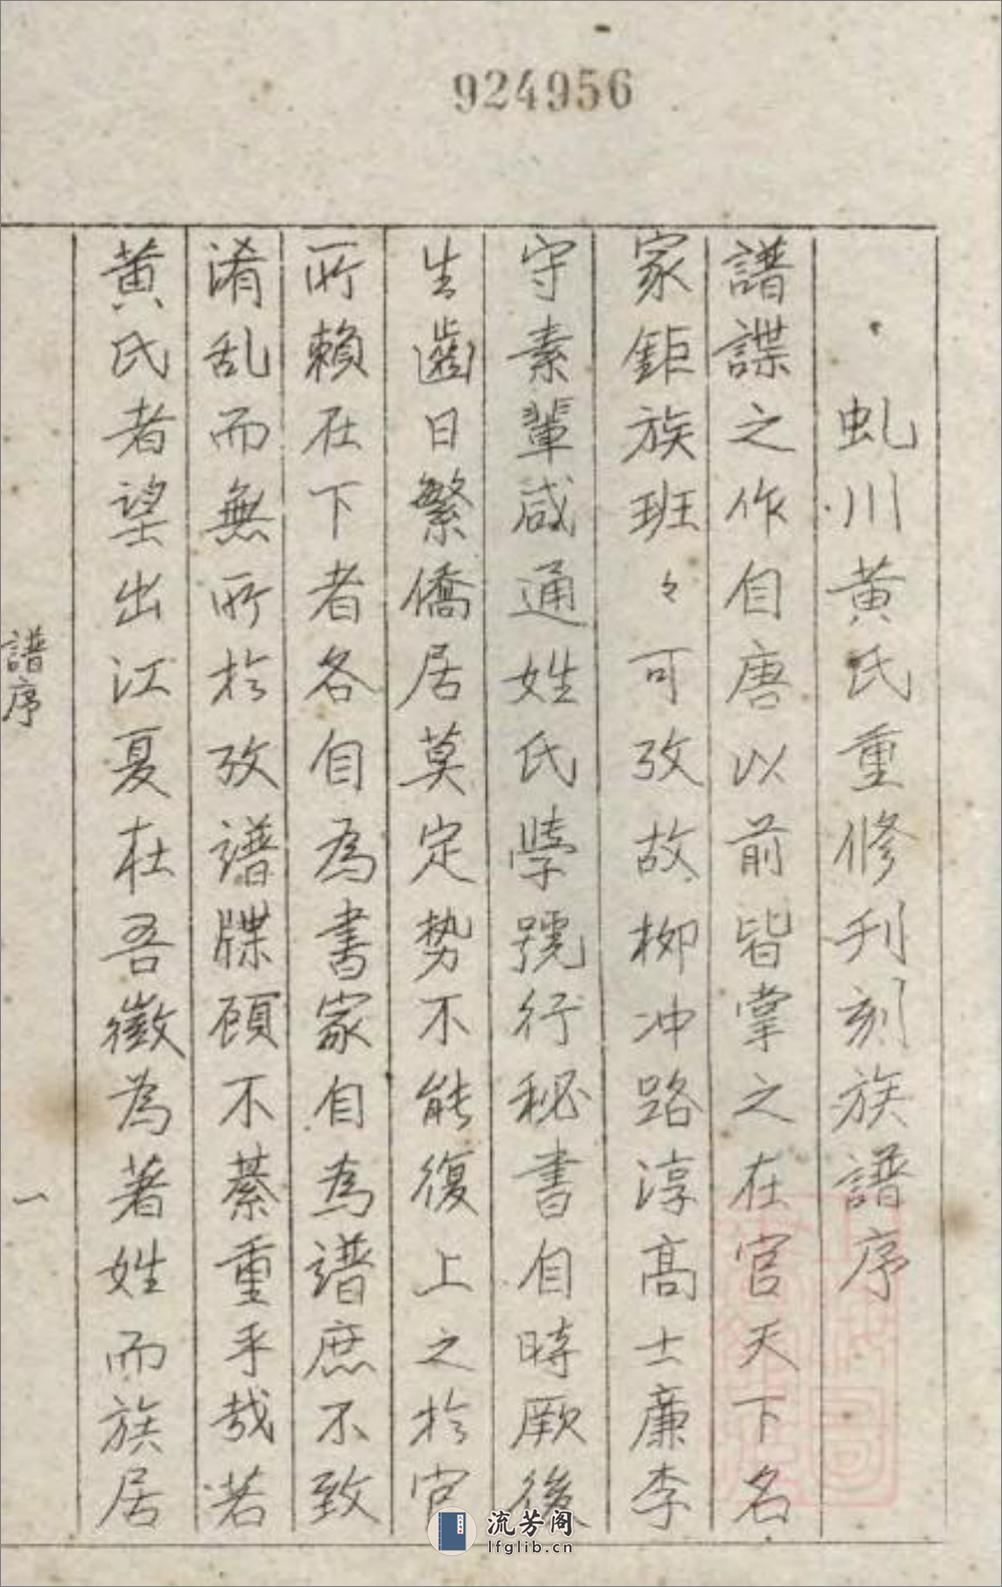 924956
虬川黄氏重修刋刻族譜序
譜諜之作自唐以前皆掌之在官天下名
家鉅族班々可攷故柳冲路淳高士廉李
守素輩咸通姓氏學號行秘書自時厥後
生齒日繁僑居莫定勢不能復上之於官
所賴在下者各自為書家自為譜庶不致
淆乱而無所於攷譜牒顧不綦重乎哉若
黄氏者望出江夏在吾徽為著姓而族居
譜序
一
流芳阁
lfglib.cn